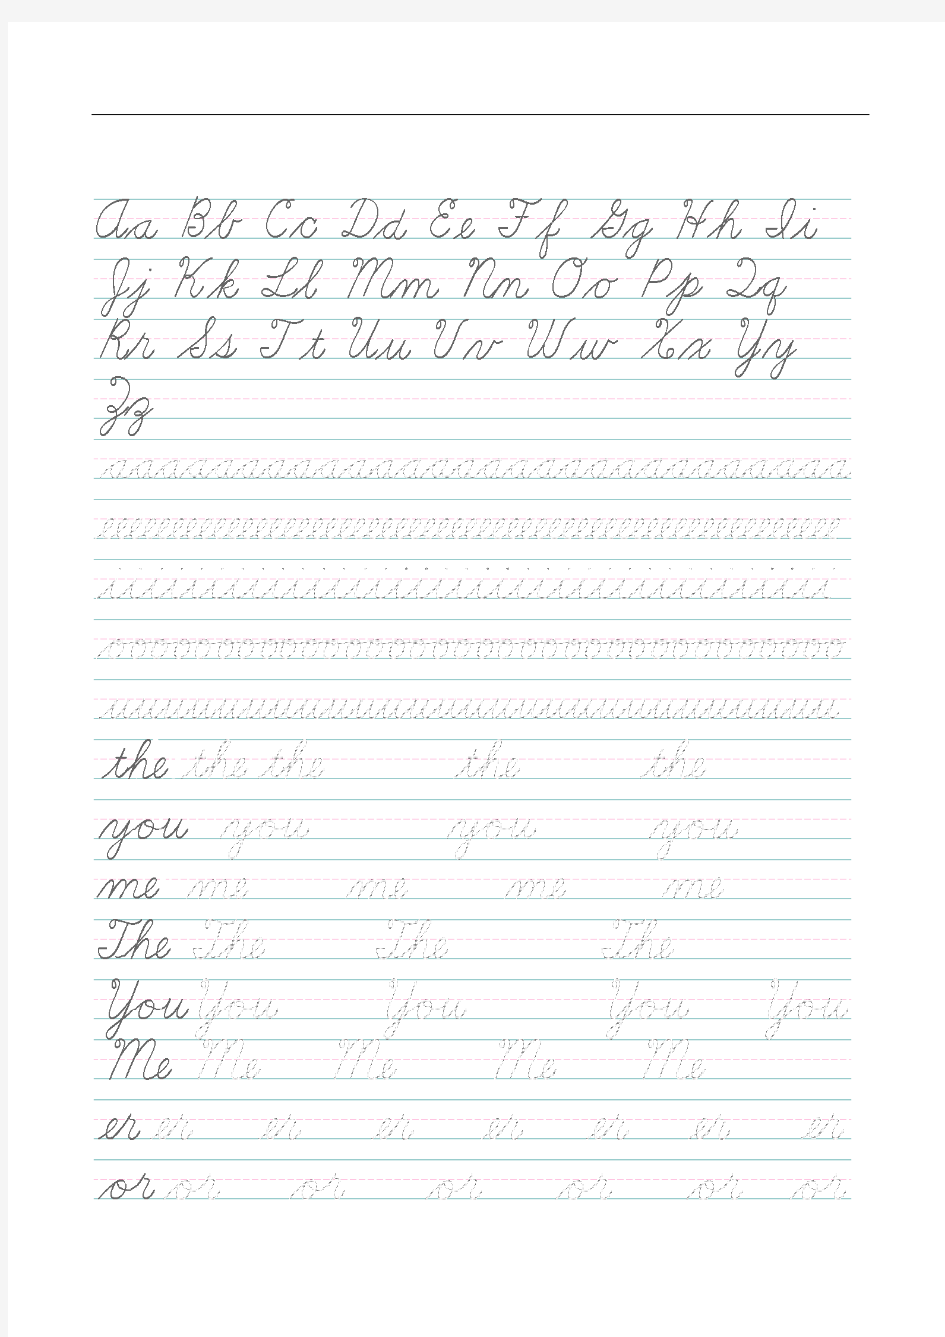 Aa Bb Cc Dd Ee Ff Gg Hh Ii
Jj Kk Ll Mm Nn Oo Pp Qq
Rr Ss Tt Uu Vv Ww Xx Yy
Zz
aaaaaaaaaaaaaaaaaaaaaaaaaaaa
eeeeeeeeeeeeeeeeeeeeeeeeeeeeeeeeeeeeeeeeeeeeeeeeeeeee
iiiiiiiiiiiiiiiiiiiiiiiiiiiiiiiiiiii
oooooooooooooooooooooooooooooooooo
uuuuuuuuuuuuuuuuuuuuuuuuuuuu
the the the the the
you you you you
me me me me me
The The The The
You You You You You
Me Me Me Me Me
er er er er er er er er
or or or or or or or